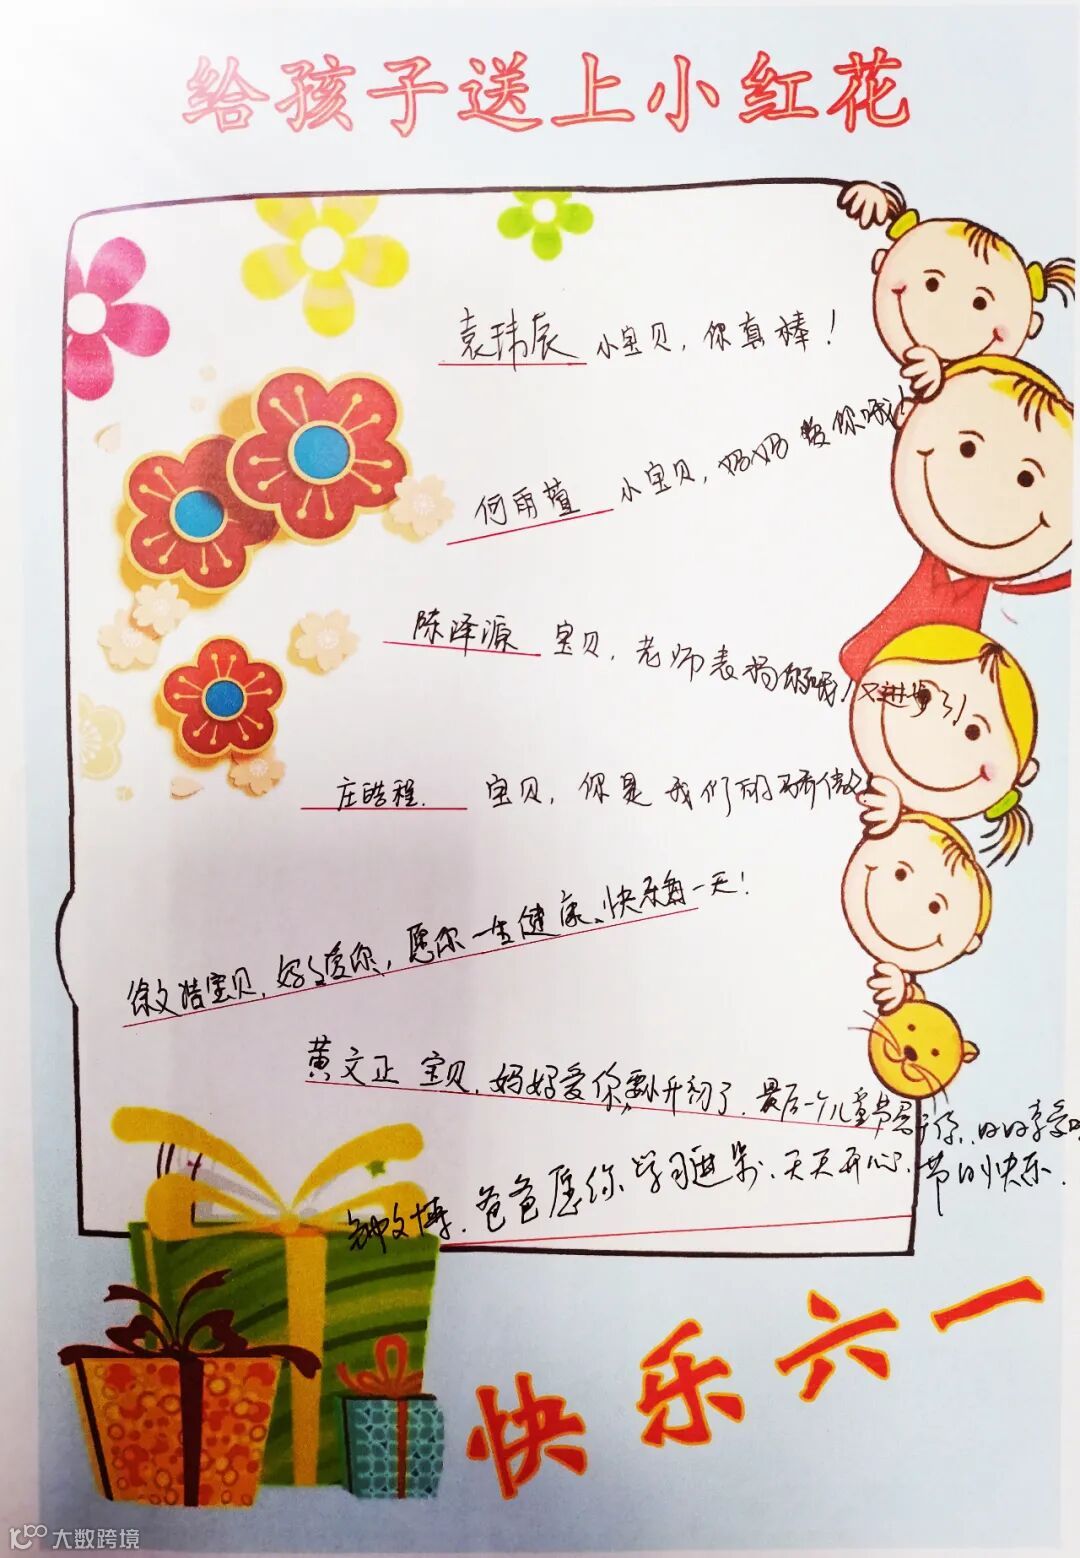 给孩子送上小红花
袁玮辰 小宝贝，你真棒！
何雨萱 小宝贝，妈妈爱你哦！
陈泽源 宝贝，老师表扬你哦！又进步了！
庄皓程. 宝贝，你是我们的骄傲
徐文浩宝贝，妈妈爱你，愿你一生健康、快乐每一天！
黄文正 宝贝，妈妈爱你，要升初了，最后一个儿童节
钟文博，爸爸愿你学习进步、天天开心、节日快乐.
快乐六一
大数跨境